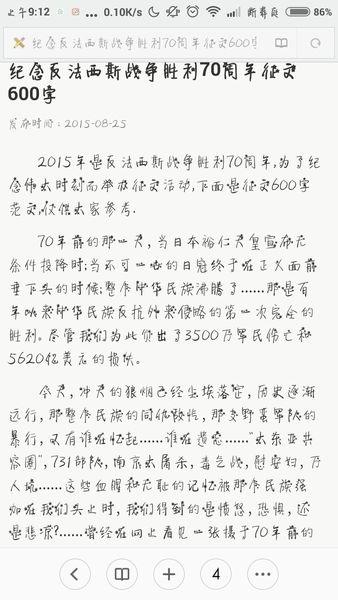 上午9:12 ... 0.10K/s 86%
纪念反法西斯战争胜利70周年征文600字
纪念反法西斯战争胜利70周年征文
600字
发布时间：2015-08-25
2015年是反法西斯战争胜利70周年,为了纪
念伟大时刻而举办征文活动,下面是征文600字
范文,仅供大家参考.
70年前的那一天,当日本裕仁天皇宣布无
条件投降时;当不可一世的日寇终于在正义面前
垂下头的时候;整个中华民族沸腾了……那是百
年以来中华民族反抗外来侵略的第一次完全的
胜利。尽管我们为此付出了3500万军民伤亡和
5620亿美元的损失。
今天,冲天的狼烟已经尘埃落定,历史逐渐
远行,那整个民族的同仇敌忾,那支野蛮军队的
暴行,又有谁在怀起……谁在遗忘……“大东亚共
荣圈”,731部队,南京大屠杀,毒气战,慰安妇,万
人坑……这些血腥和无耻的记忆被那个民族强
加在我们头上时,我们得到的是愤怒,恐惧,还
是悲凉?……曾经在网上看见一张摄于70年前的
4